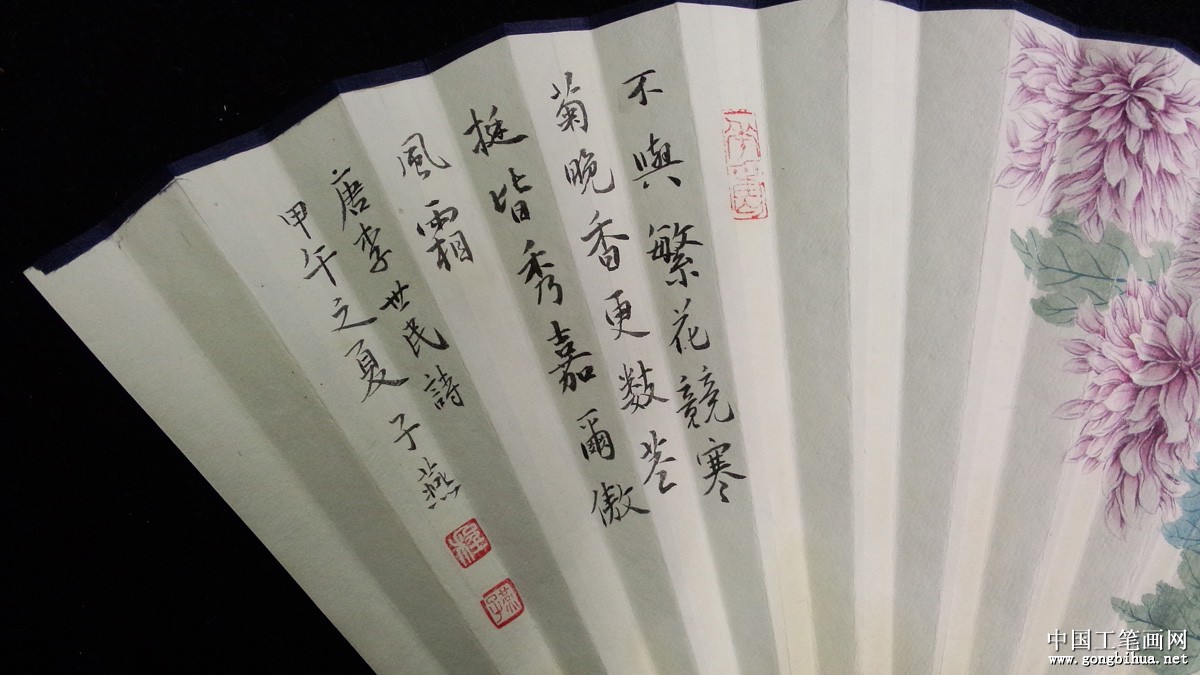 不與繁花競寒
菊晚香更数茎
挺皆秀嘉爾傲
風霜
唐李世民詩
甲午之夏子燕
子燕
中国工笔画网
www.gongbihua.net